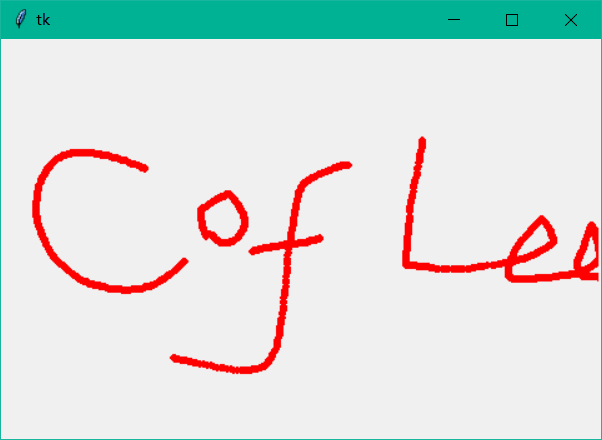 tk
Cof Lee